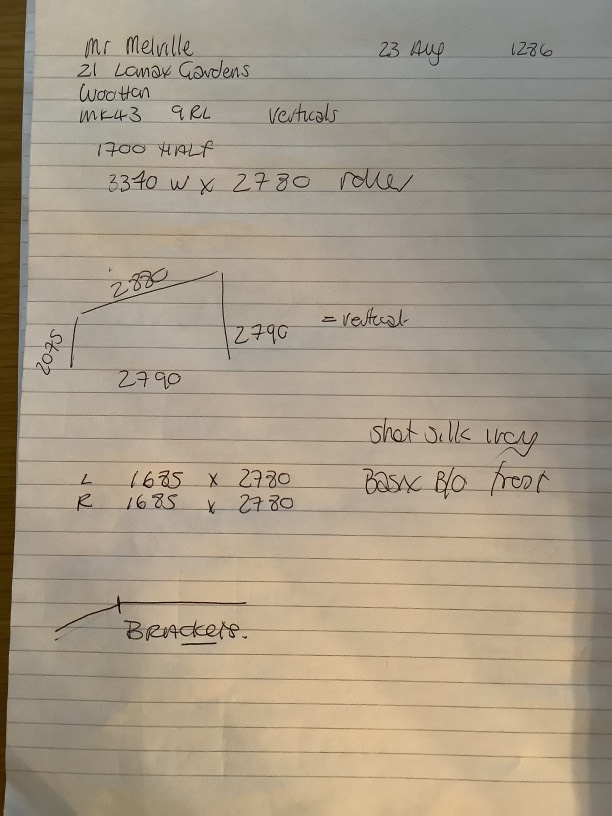 Mr Melville 23 Aug 1286
21 Lomax Gardens
Wootton
MK43 9RL Verticals
1700 HALF
3370 W x 2780 roller
2880
2075
2790
= vertical
2790
shot silk
L 1685 x 2780
Basix B/O frost
R 1685 x 2780
BRACKETS.